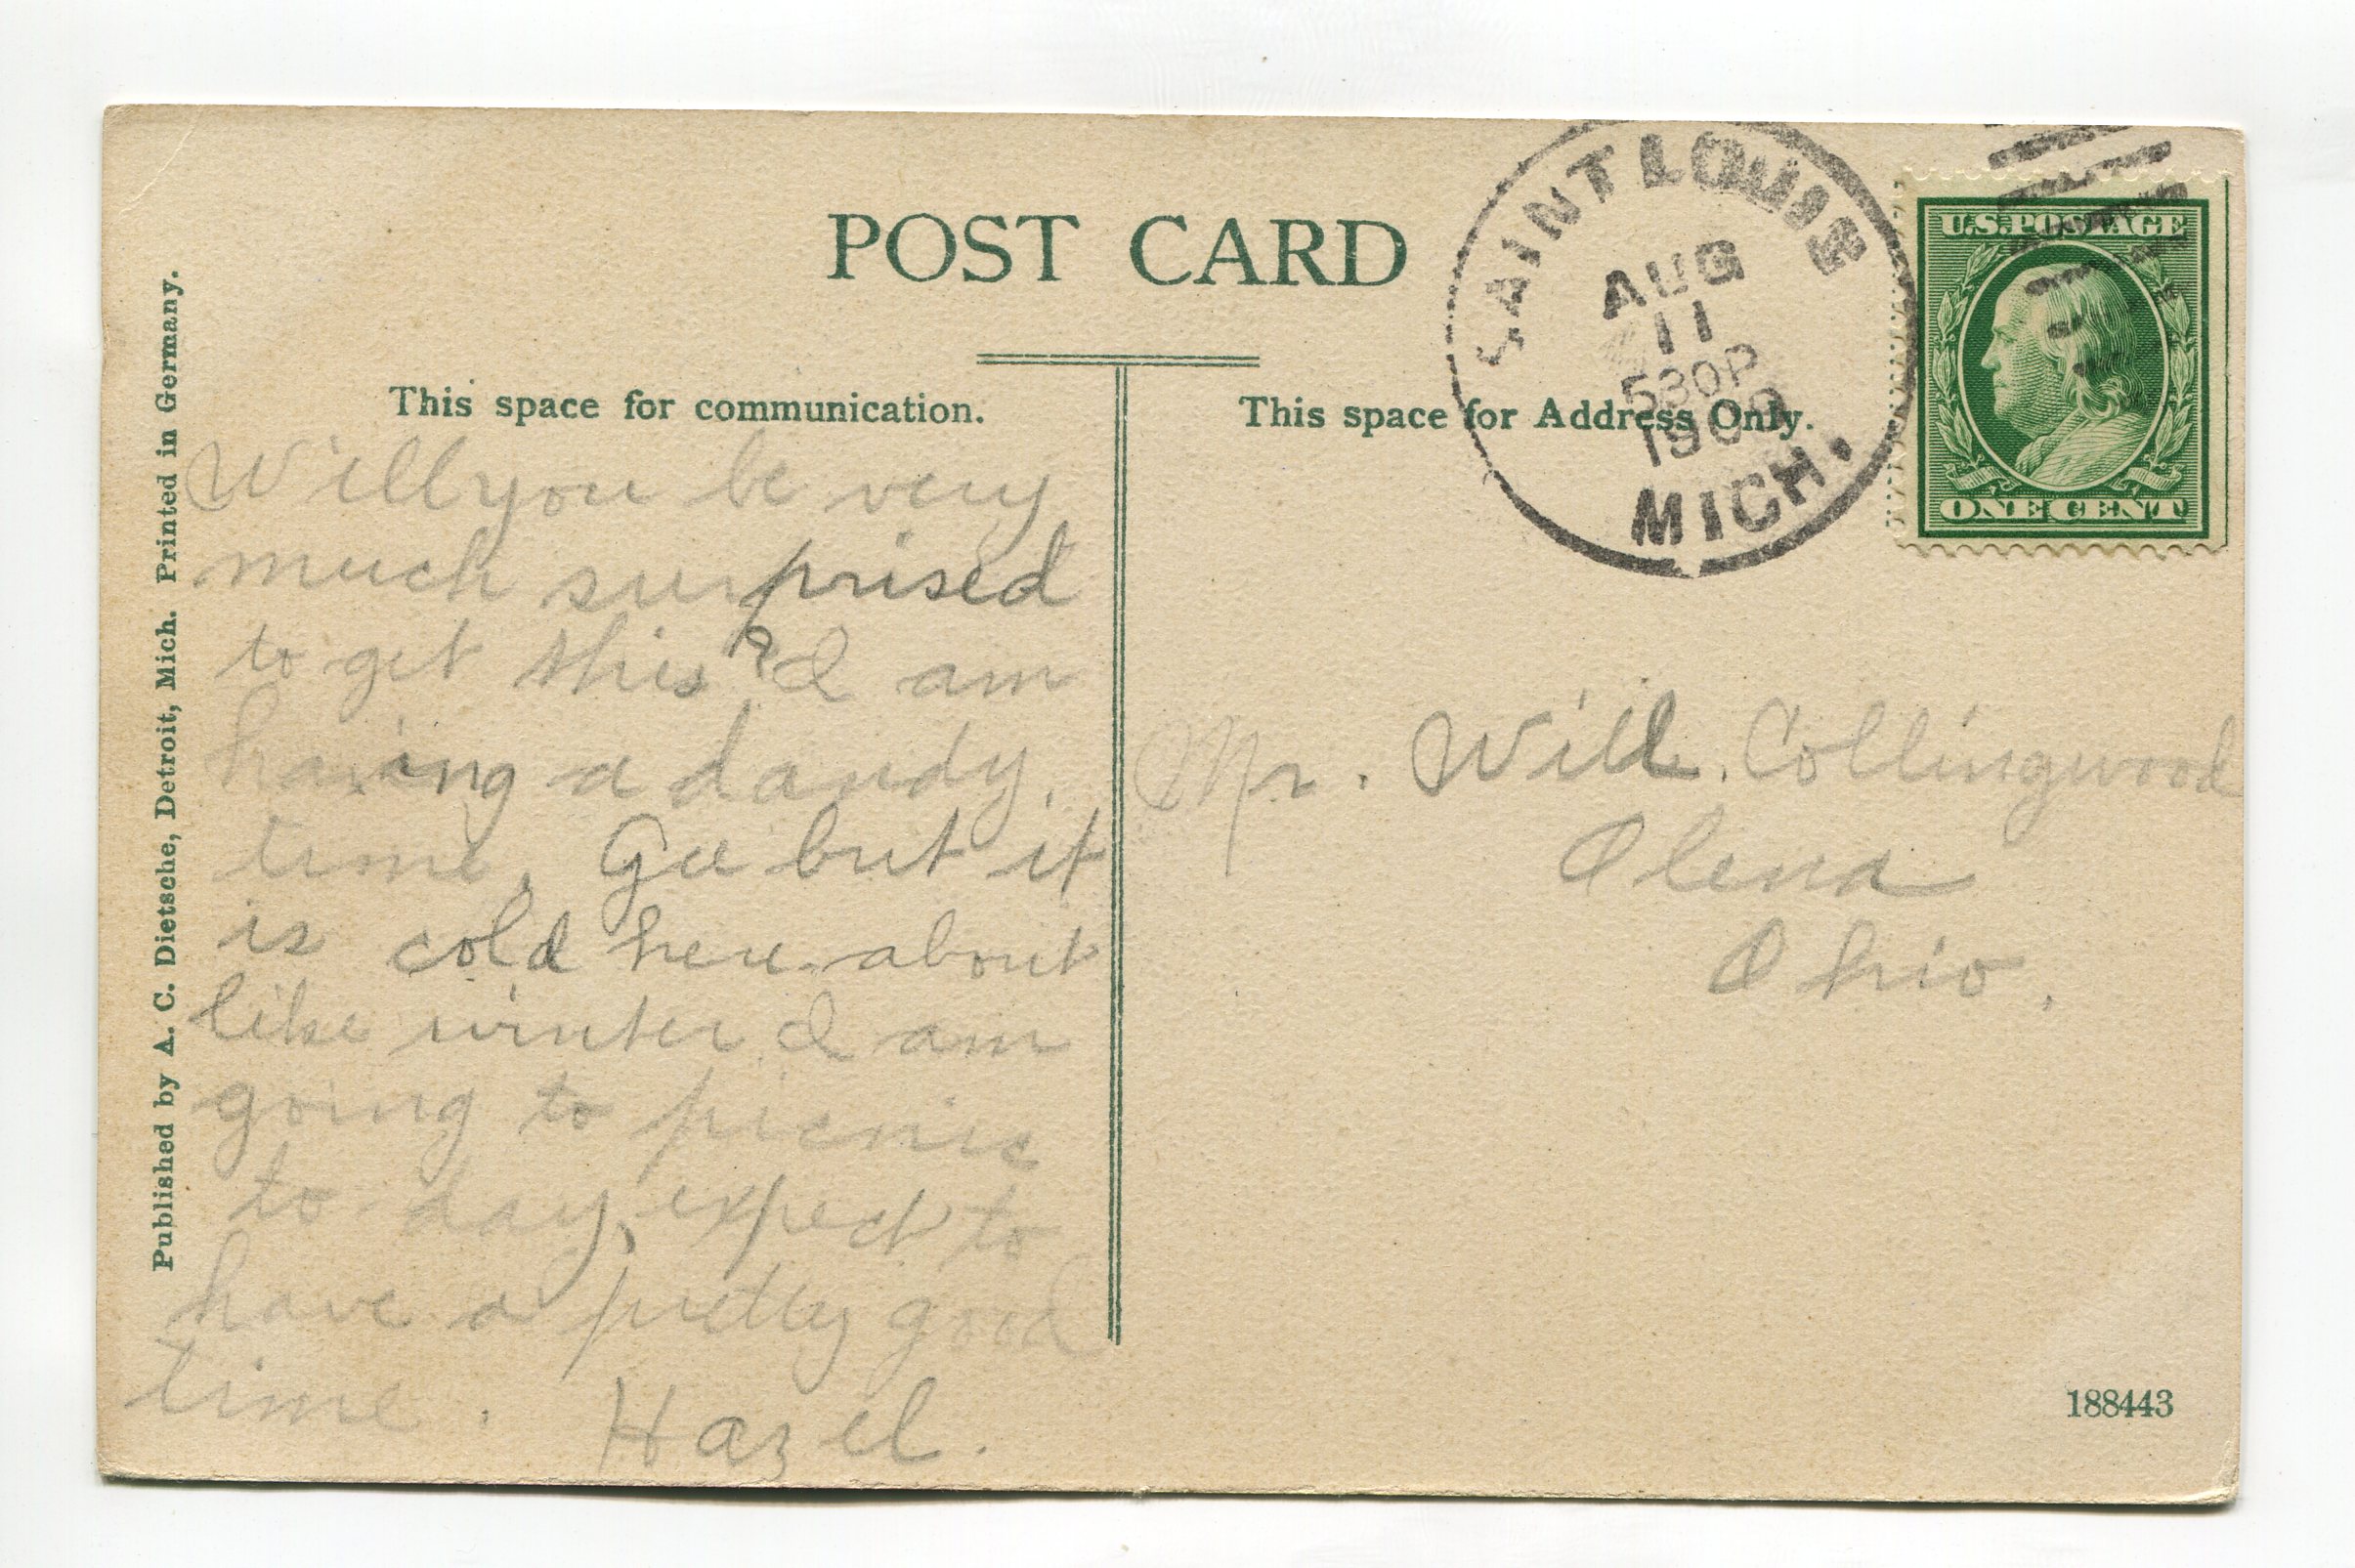 POST CARD
This space for communication.
This space for Address Only.
Published by A. C. Dietsche, Detroit, Mich. Printed in Germany.
SAINT LOUIS
AUG
11
530P
1909
MICH.
U.S. POSTAGE
ONE CENT
Will you be very
much surprised
to get this? I am
having a dandy
time. Gee but it
is cold here about
like winter I am
going to picnic
to day, expect to
have a pretty good
time.
Hazel.
Mr. Will Collingwood
Olena
Ohio.
188443